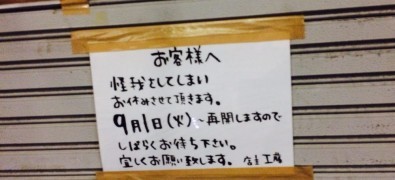 お客様へ
怪我をしてしまい
お休みさせて頂きます。
9月1日(火)~再開しますので
しばらくお待ち下さい。
宜しくお願い致します。 店主